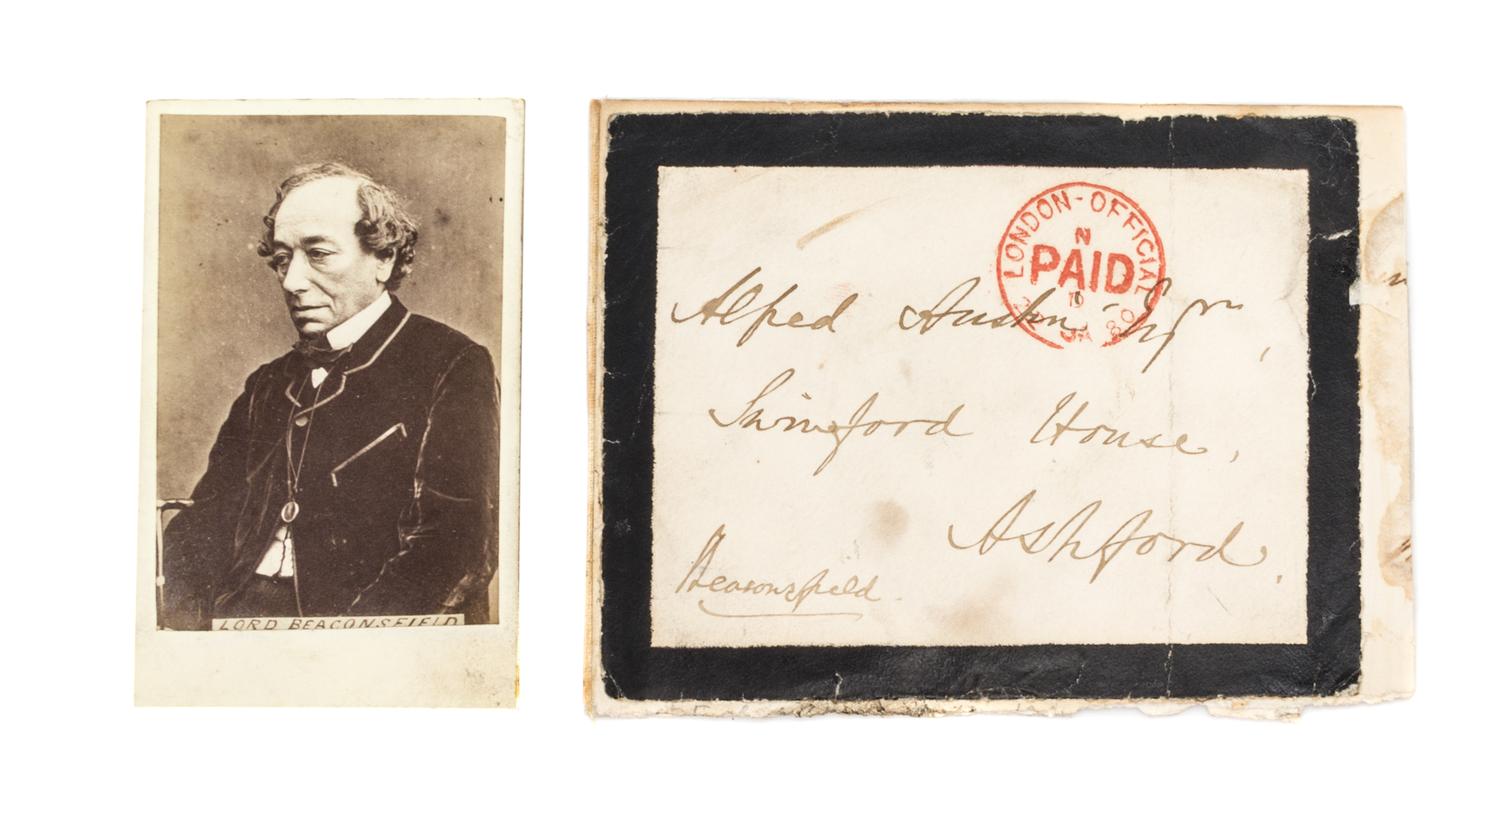 LORD BEACONSFIELD
LONDON-OFFICIAL
N
PAID
JA 80
Alfred Austin Esqre,
Swinford House,
Ashford.
Beaconsfield